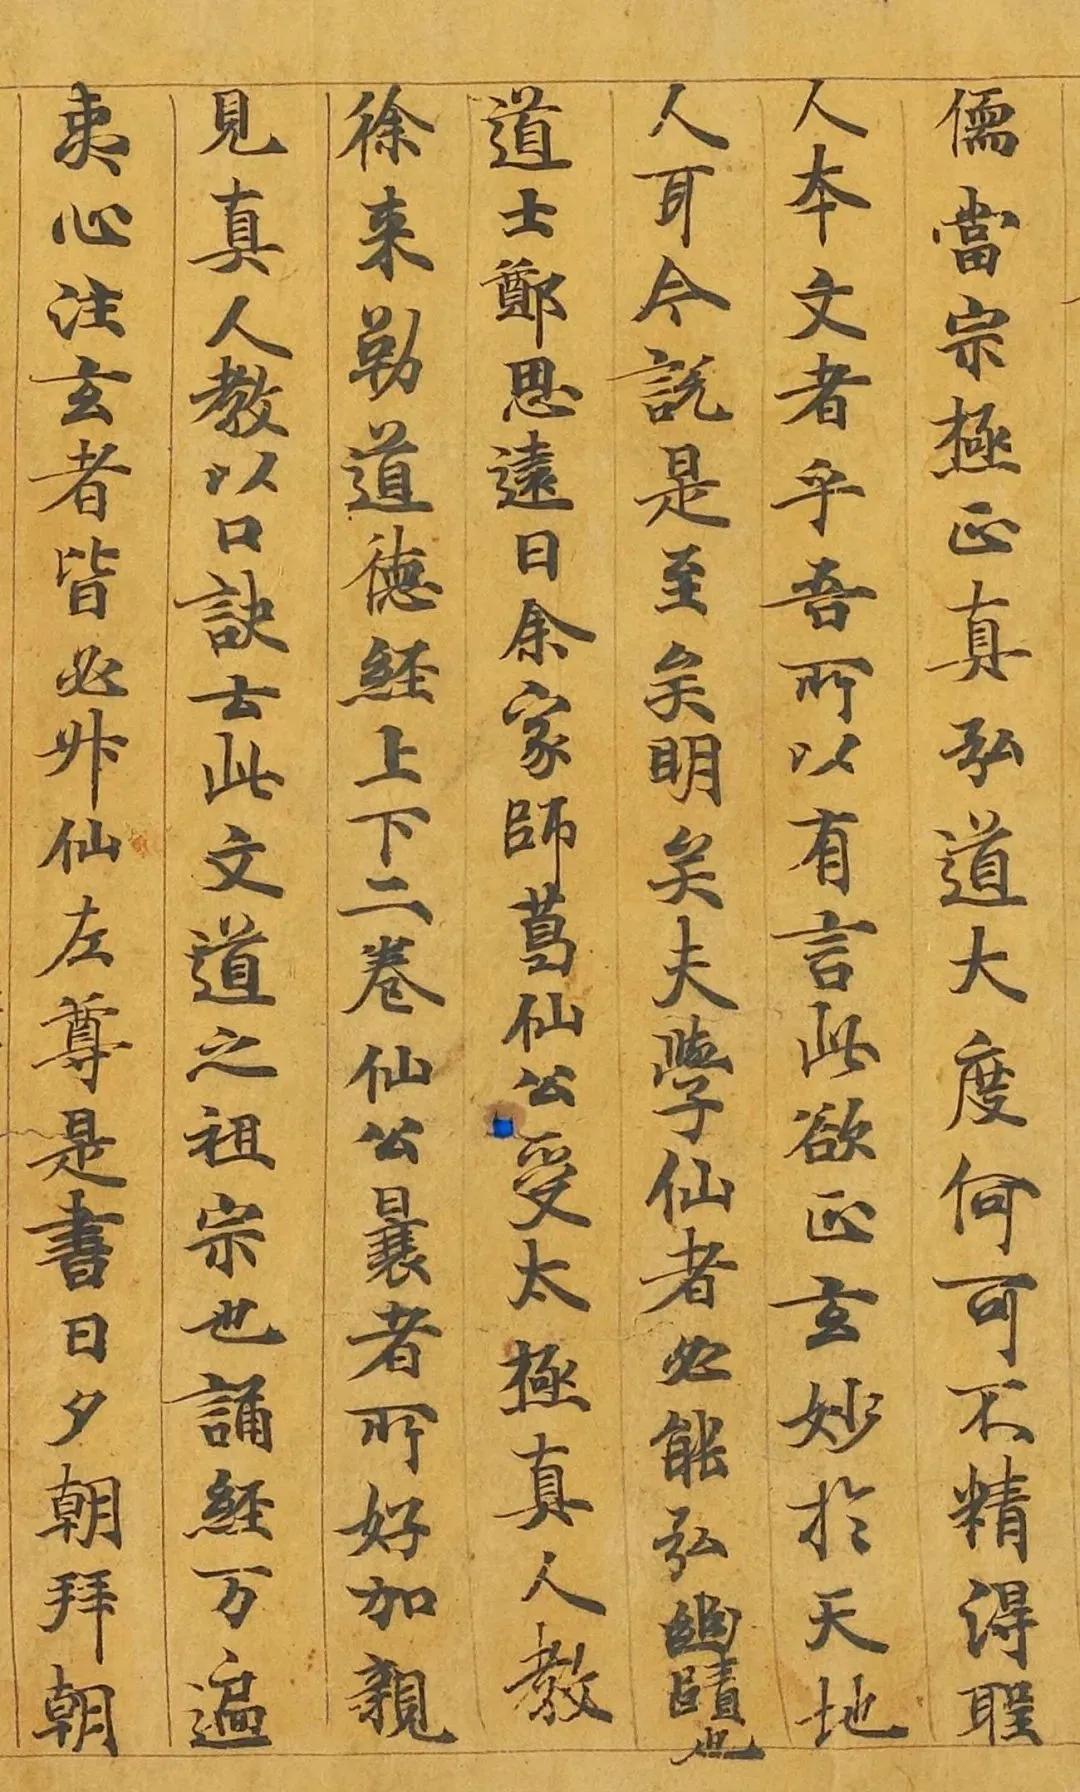 儒當宗極正真弘道大度何可不精得聖
人本文者乎吾所以有言此欲正玄妙於天地
人耳今説是至矣明矣夫學仙者必能弘幽賾也
道士鄭思遠曰余家師葛仙公受太極真人教
徐来勒道徳經上下二卷仙公曩者所好加親
見真人教以口訣云此文道之祖宗也誦經万遍
夷心注玄者皆必升仙左尊是書日夕朝拜朝